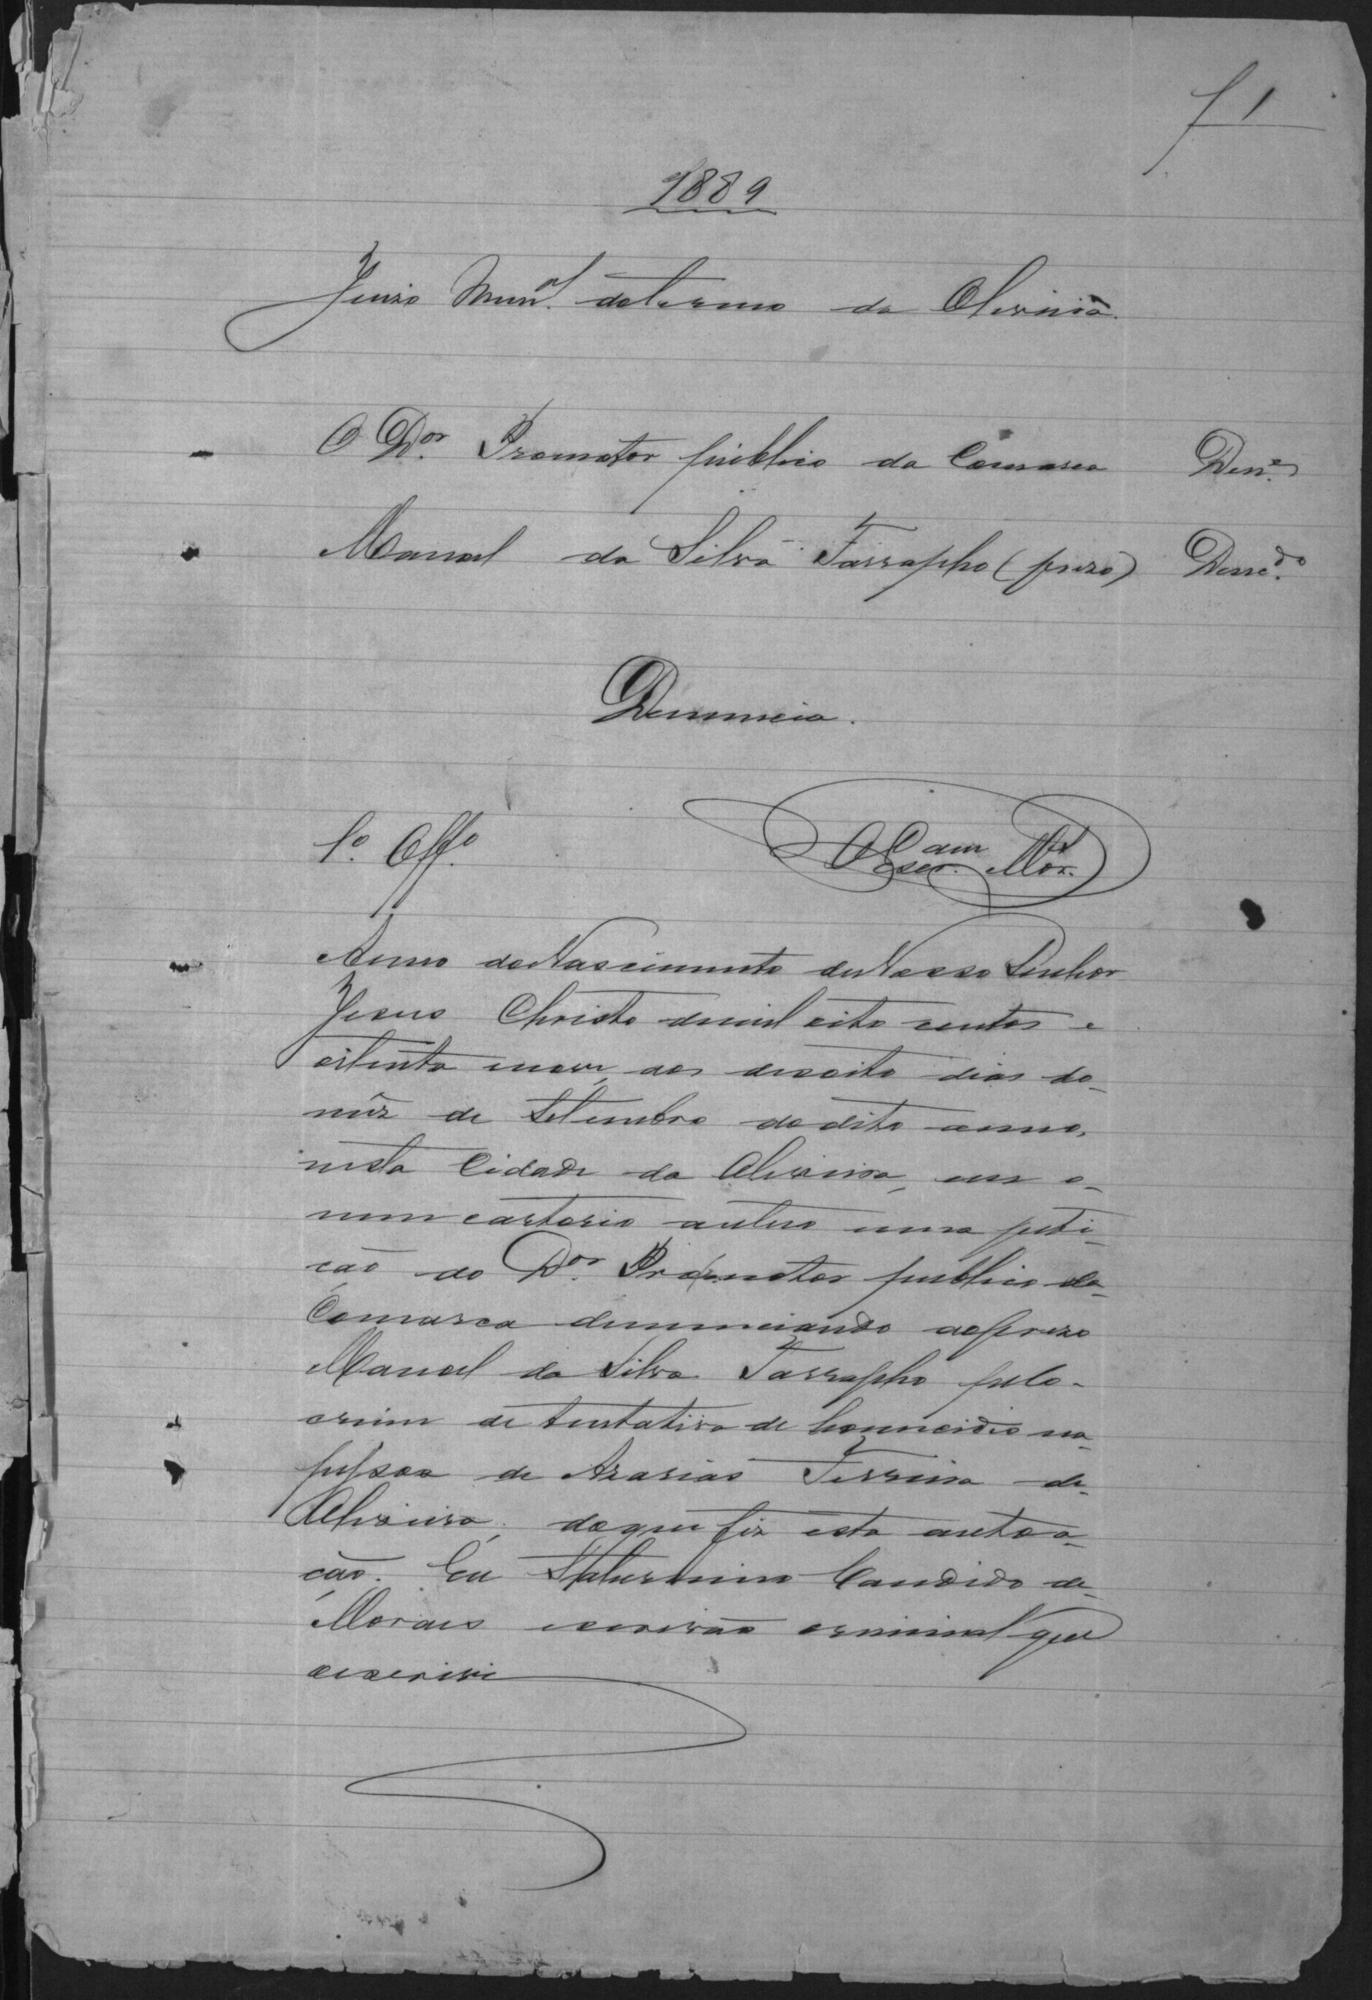 f 1
1889
Juizo Mun.al do termo da Oliveira.
O D.or Promotor publico da Comarca Den.e
Manoel da Silva Farrapho (prezo) Denc.do
Denuncia.
1.o Off.o
O Escr.am Mor.
Anno do Nascimento de Nosso Senhor
Jesus Christo de mil oito centos e
oitenta e nove, aos desoito dias do
mês de Setembro do dito anno,
nesta Cidade da Oliveira, em o
meu cartorio autuo uma peti-
ção do D.or Promotor publico da
Comarca denunciando ao prezo
Manoel da Silva Farrapho pelo
crime de tentativa de homicidio na
pessoa de Azarias Ferreira de
Oliveira, do que fiz esta autoa-
ção. Eu Saturnino Candido de
Moraes escrivão criminal que
escrivi